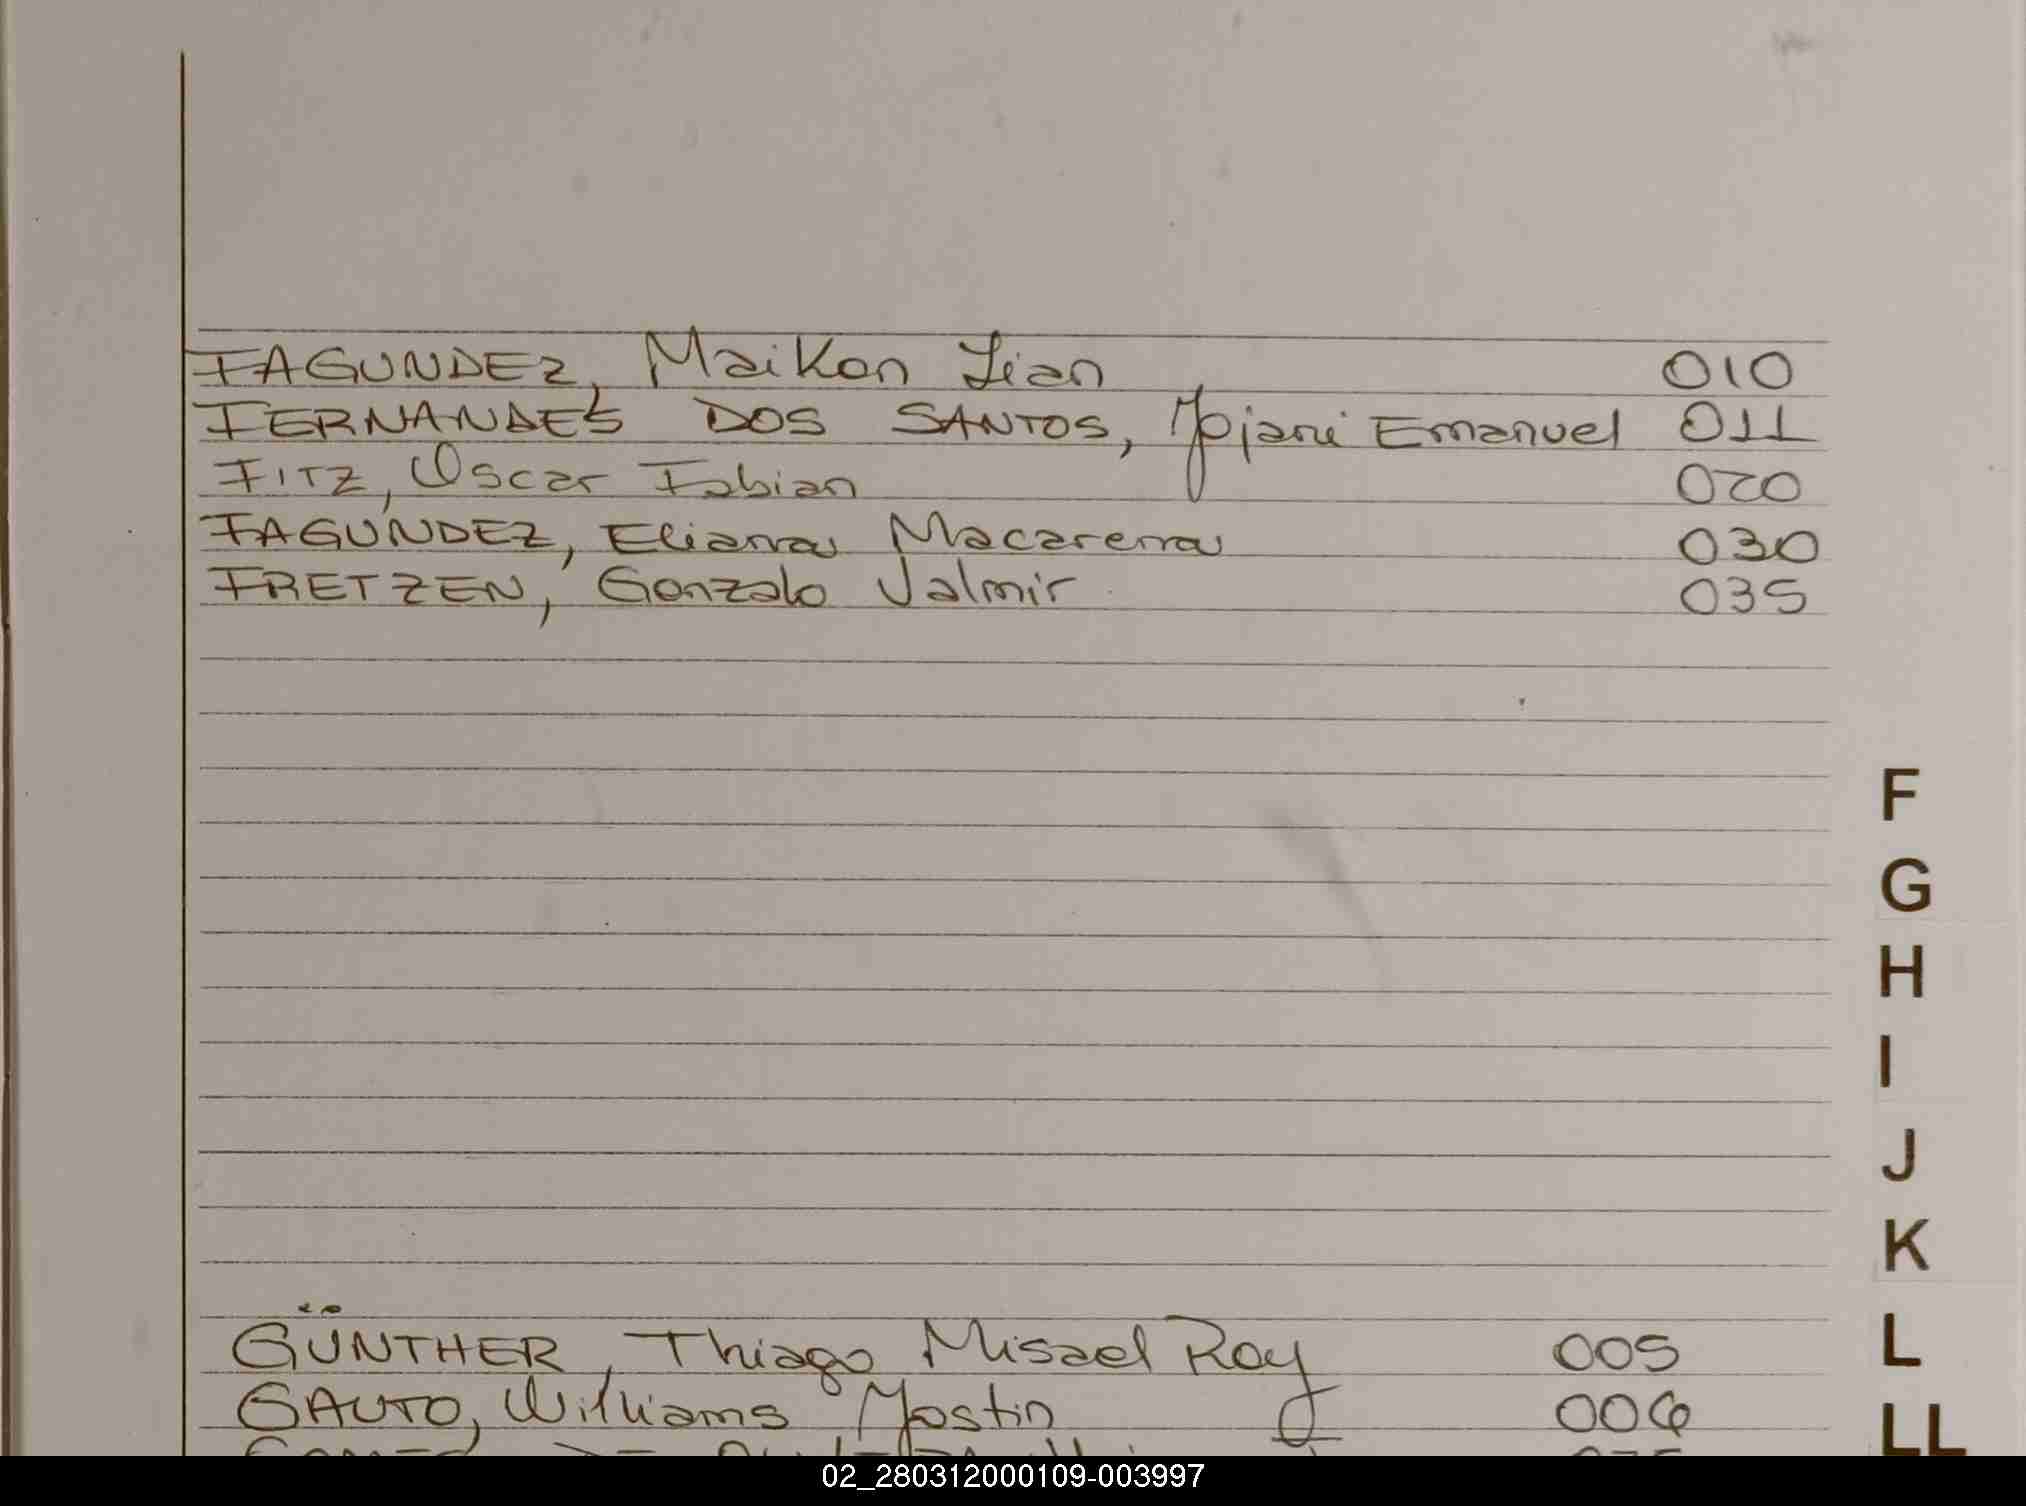 FAGUNDEZ, Maikon Lian 010
FERNANDES DOS SANTOS, Emanuel 011
FITZ, Oscar Fabian 020
FAGUNDEZ, Eliana Macarena 030
FRETZEN, Gonzalo Valmir 035
F
G
H
I
J
K
GÜNTHER, Thiago Misael Roy 005
L
GAUTO, Williams Yostin 006
LL
02_280312000109-003997